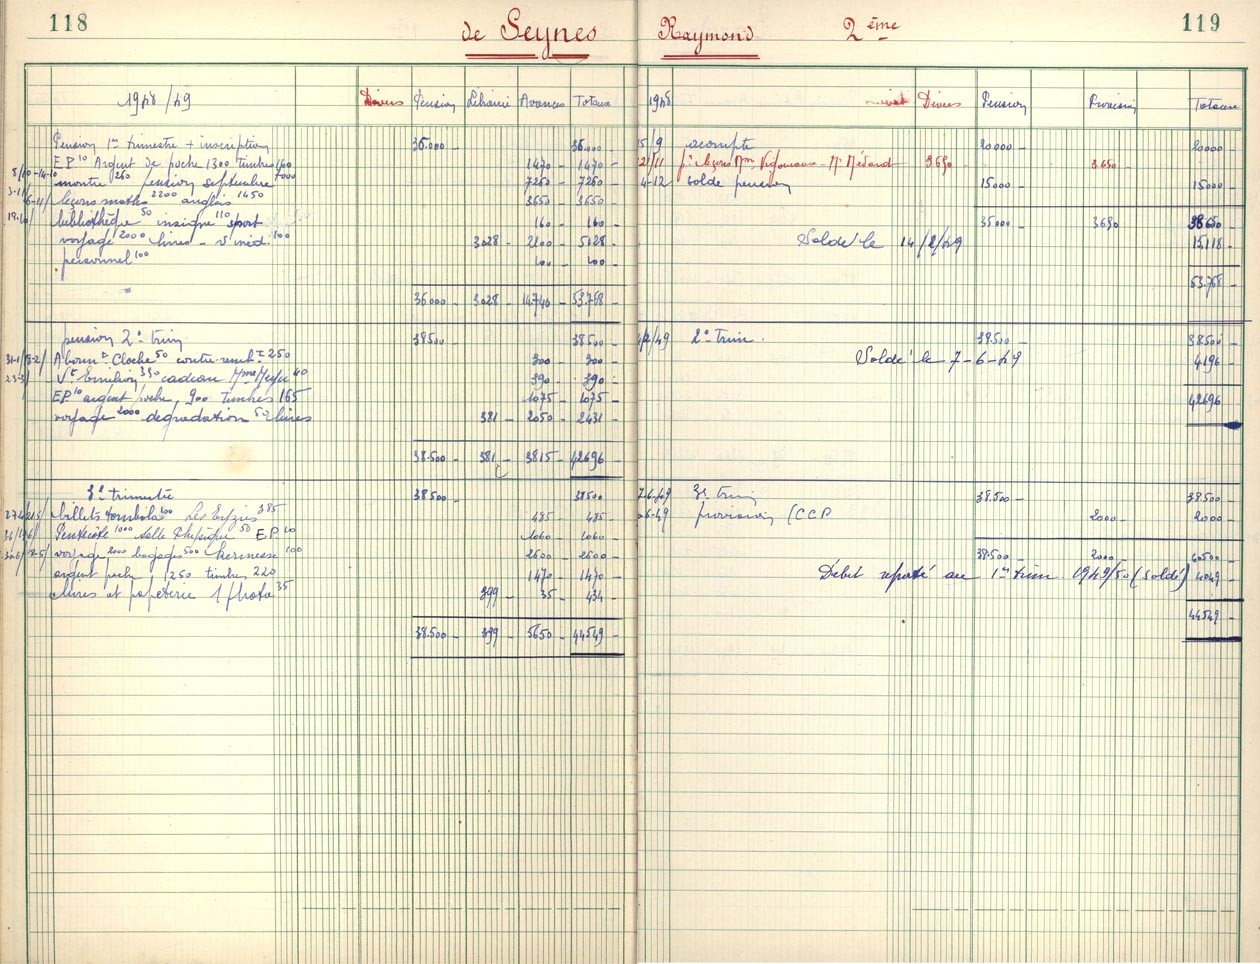 118
de Seynes
1948/49
Divers Pension Librairie Avances Totaux
Pension 1er trimestre + inscription 36.000 36.000
EP 10 Argent de poche 1300 timbres 160 1470 1470
montre 260 pension septembre 7000 7260 7260
leçons maths 2200 anglais 1450 3650 3650
bibliothèque 50 insigne 110 sport 160 160
voyage 2000 livres 100 3028 2100 5128
personnel 100 100 100
36000 3028 14.740 53.768
pension 2e trim 38500 38500
Abonnt Cloche 50 contre rembt 250 300 300
St Emilion 350 cadeau Mme 40 390 390
EP 10 argent poche, 900 timbres 165 1075 1075
voyage 2000 dégradation 50 livres 381 2050 2431
38.500 381 3815 42696
3e trimestre 38500 38500
billets tombola 100 Les Eyzies 385 485 485
Pentecôte 1000 Salle Physique 50 EP 10 1060 1060
voyage 2000 bagages 500 kermesse 100 2600 2600
argent poche 1250 timbres 220 1470 1470
livres et papeterie 1 photo 35 399 35 434
38.500 399 5650 44549
Raymond 2ème
119
1948 Divers Pension Provision Totaux
15/9 acompte 20000 20000
21/11 pr leçons Mme Vigouroux - Mr Médard 3.650 3650
4-12 solde pension 15000 15000
35000 3650 38650
Soldé le 14/2/49 15.118
53.768
2e Trim. 38500 38500
Soldé le 7-6-49 4196
42696
7-6-49 3e trim 38.500 38500
provision CCP 2000 2000
38.500 2000 40500
Débit reporté au 1er trim 1949/50 (soldé) 4049
44549